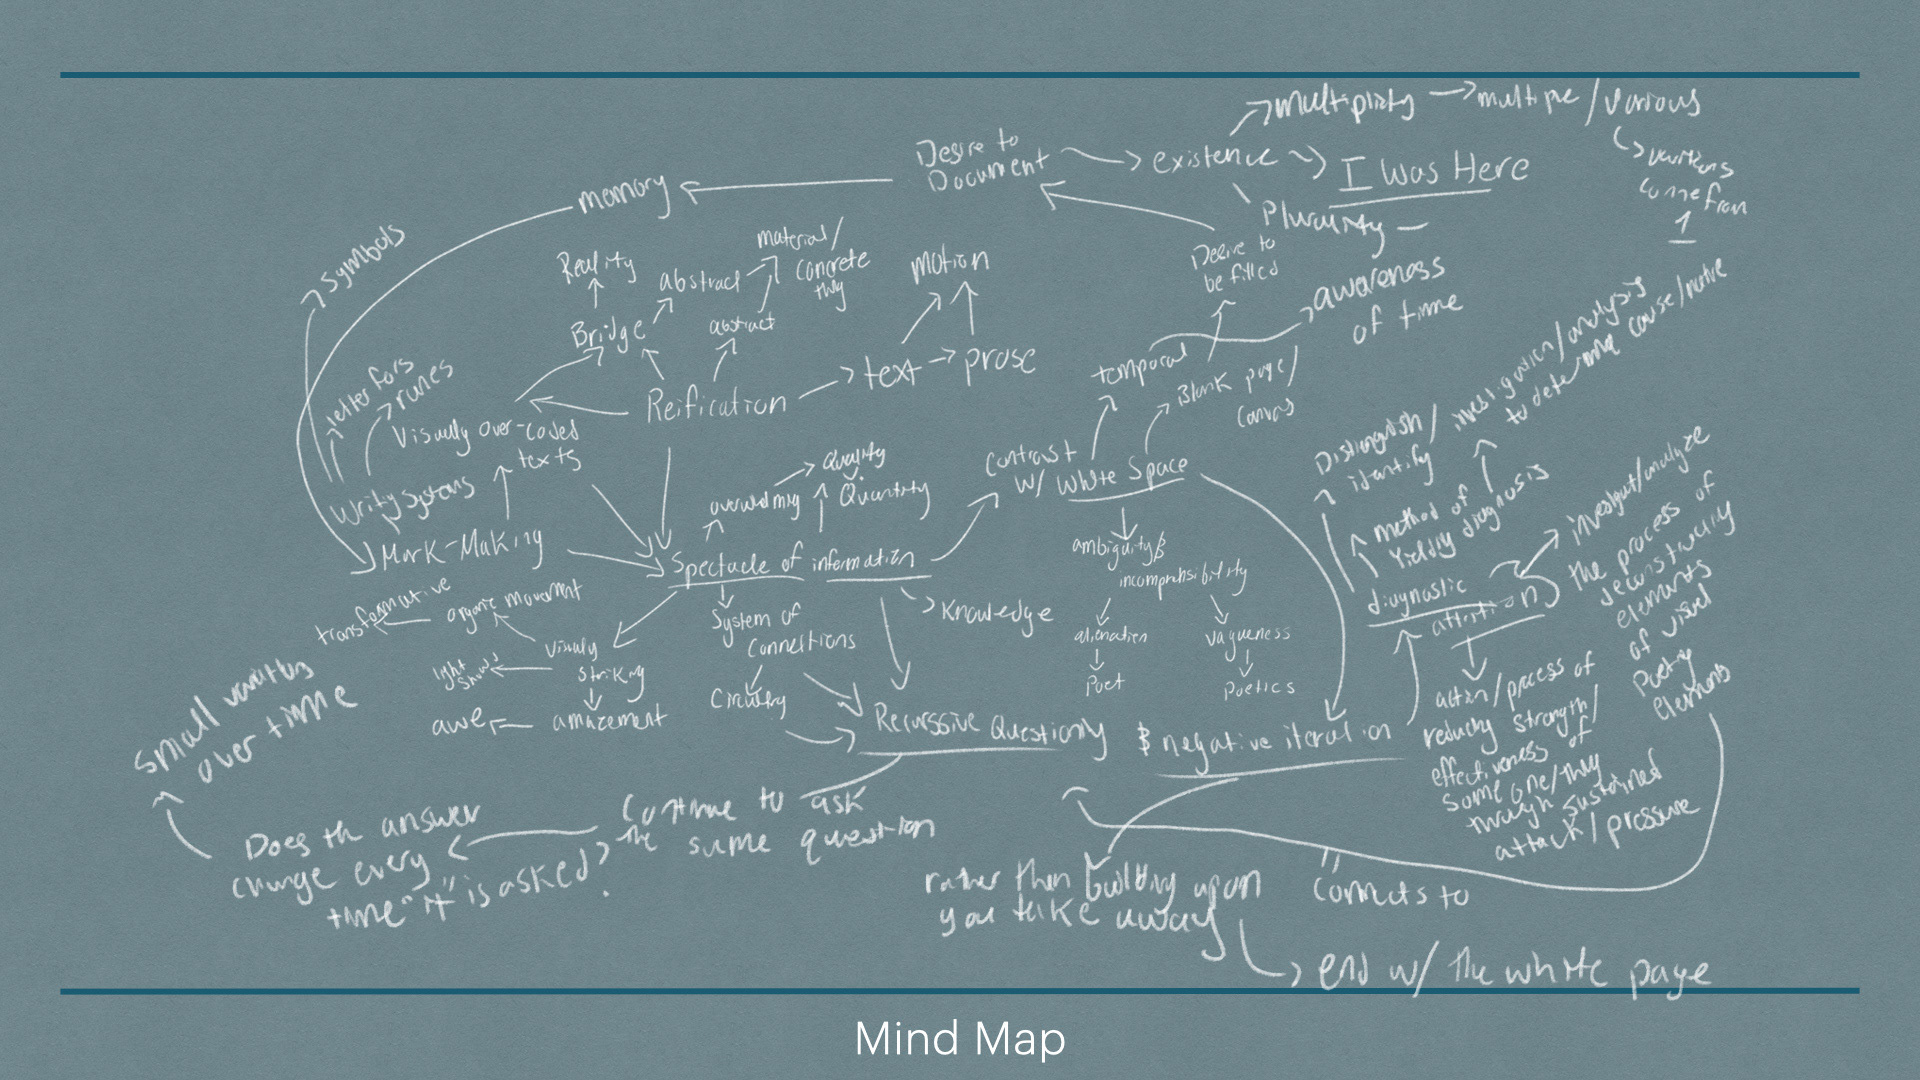 Multiplicity
multiple / various
variations
come from
1
Desire to
Document
existence
I Was Here
Plurality
memory
symbols
Desire to
be filled
awareness
of time
Reality
abstract
material/
concrete
Bridge
abstract
motion
text
prose
Reification
temporal
Blank page/
Canvas
runes
Visually over-coded
texts
Systems
Mark-Making
Quality
Quantity
Spectacle of information
Contrast
w/ White Space
ambiguity &
alienation
Poet
vagueness
Poetics
Distinguish /
identify
investigation / analysis
to determine cause/
method of
diagnosis
diagnostic
the process of
elements
of visual
Poetry
elements
action/process of
strength/
effectiveness of
some one/
through sustained
attack / pressure
transformative
organic movement
Visually
striking
light
shows
amazement
awe
System of
Connections
Circuitry
Knowledge
Questioning
& negative iteration
small
over time
Does the answer
change every
time "it" is asked?
Continue to ask
the same question
rather than building upon
you take away
Connects to
end w/ the white page
Mind Map